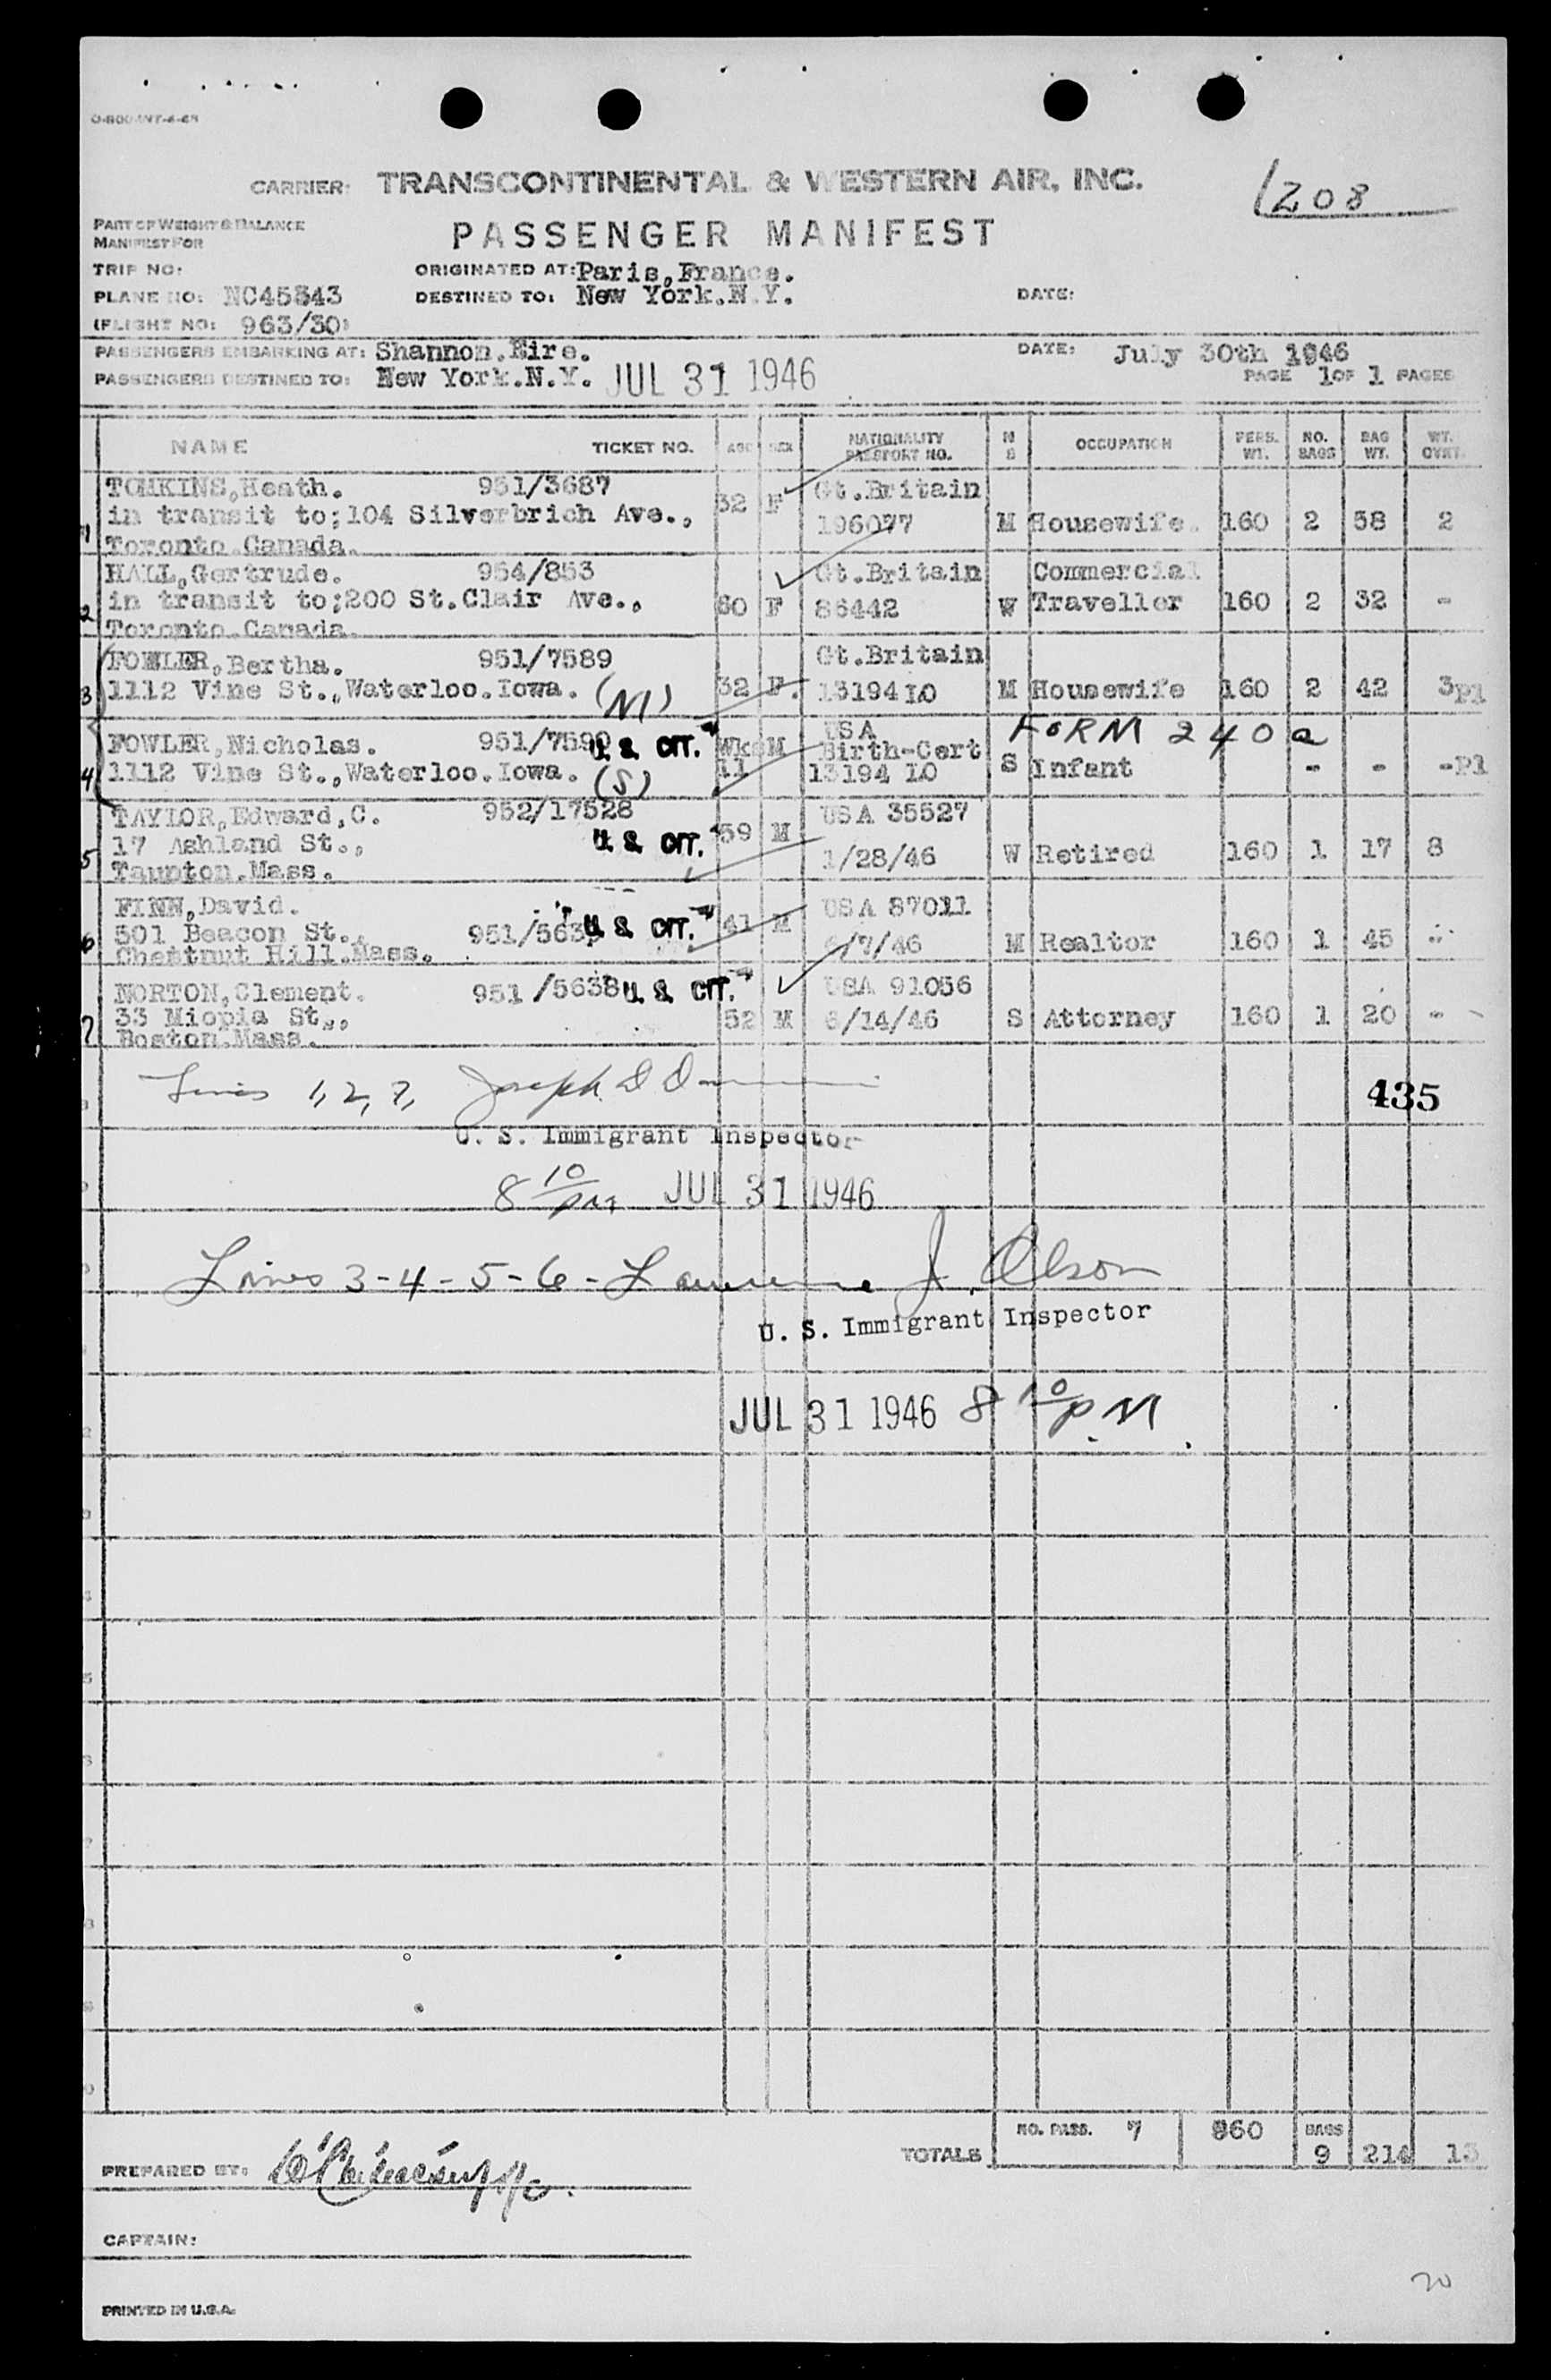 CARRIER: TRANSCONTINENTAL & WESTERN AIR, INC.
1208
PART OF WEIGHT & BALANCE
MANIFEST FOR
PASSENGER MANIFEST
TRIP NO:
ORIGINATED AT: Paris, France.
PLANE NO: NC45343
DESTINED TO: New York.N.Y.
DATE:
(FLIGHT NO: 963/30)
PASSENGERS EMBARKING AT: Shannon.Eire.
DATE: July 30th 1946
PASSENGERS DESTINED TO: New York.N.Y. JUL 31 1946
PAGE 1 OF 1 PAGES
NAME TICKET NO. AGE SEX NATIONALITY PASSPORT NO. M S OCCUPATION PERS. WT. NO. BAGS BAG WT. WT. OVRT.
TOMKINS,Heath. 951/3687 32 F Gt.Britain
1 in transit to;104 Silverbrich Ave., 196077 M Housewife. 160 2 58 2
Toronto.Canada.
HALL,Gertrude. 954/853 Gt.Britain Commercial
2 in transit to;200 St.Clair Ave., 60 F 86442 W Traveller 160 2 32 -
Toronto.Canada.
FOWLER,Bertha. 951/7589 Gt.Britain
3 1112 Vine St.,Waterloo.Iowa. (M) 32 F. 13194 IO M Housewife 160 2 42 3pl
USA FORM 240a
FOWLER,Nicholas. 951/7590 U. S. CIT. Wks M Birth-Cert
4 1112 Vine St.,Waterloo.Iowa. (S) 11 13194 IO S Infant - - -Pl
TAYLOR,Edward,C. 952/17528 USA 35527
17 Ashland St., U. S. CIT. 59 M
5 1/28/46 W Retired 160 1 17 8
Taunton.Mass.
FINN,David. USA 87011
501 Beacon St., 951/563 U. S. CIT. 41 M
6 Chestnut Hill.Mass. /7/46 M Realtor 160 1 45 -
NORTON,Clement. 951/5638 U. S. CIT. USA 91056
7 33 Miopia St., 52 M 6/14/46 S Attorney 160 1 20 -
Boston.Mass.
Lines 1, 2, 7, Joseph D
435
U. S. Immigrant Inspector
8 10 PM JUL 31 1946
Lines 3-4-5-6- Lawrence J. Olson
U. S. Immigrant Inspector
JUL 31 1946 8 10 P.M.
NO. PASS. 7 960 BAGS
TOTALS 9 214 13
PREPARED BY:
CAPTAIN:
20
PRINTED IN U.S.A.